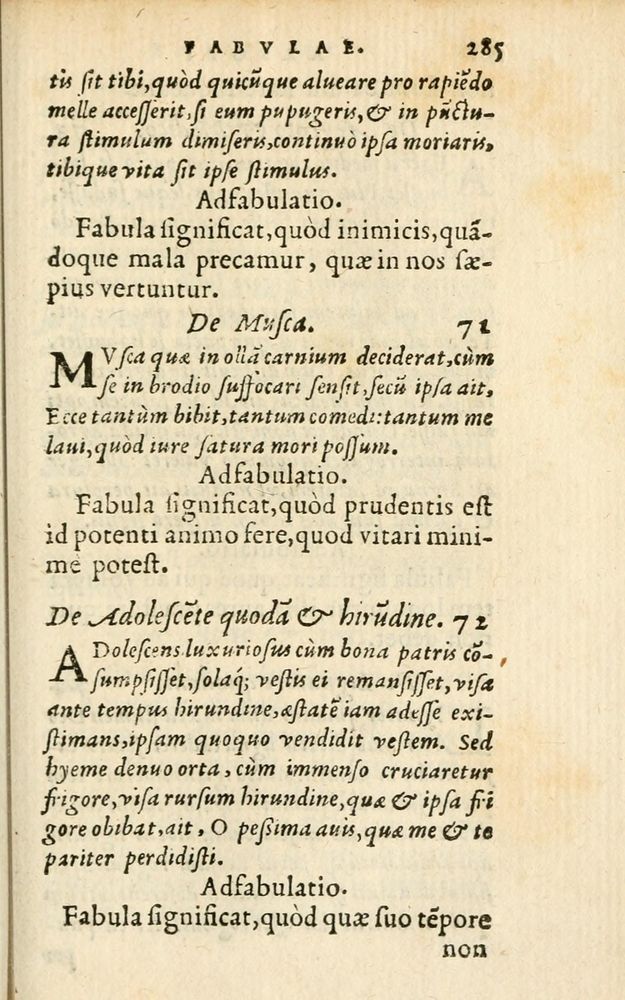 FABVLAE. 285
tis sit tibi, quòd quicũque alueare pro rapiẽdo
melle accesserit, si eum pupugeris, & in pũctu-
ra stimulum dimiseris, continuò ipsa moriaris,
tibique vita sit ipse stimulus.
Adfabulatio.
Fabula significat, quòd inimicis, quã-
doque mala precamur, quæ in nos sæ-
pius vertuntur.
De Musca. 71
MVsca quæ in ollã carnium deciderat, cùm
se in brodio suffocari sensit, secũ ipsa ait,
Ecce tantùm bibi, tantum comedi: tantum me
laui, quòd iure satura mori possum.
Adfabulatio.
Fabula significat, quòd prudentis est
id potenti animo fere, quod vitari mini-
mè potest.
De Adolescẽte quodã & hirũdine. 72
ADolescens luxuriosus cùm bona patris cõ-
sumpsisset, solaq; vestis ei remansisset, visa
ante tempus hirundine, æstatẽ iam adesse exi-
stimans, ipsam quoquo vendidit vestem. Sed
hyeme denuo orta, cùm immenso cruciaretur
frigore, visa rursum hirundine, quæ & ipsa fri
gore obibat, ait, O pessima auis, quæ me & te
pariter perdidisti.
Adfabulatio.
Fabula significat, quòd quæ suo tẽpore
non